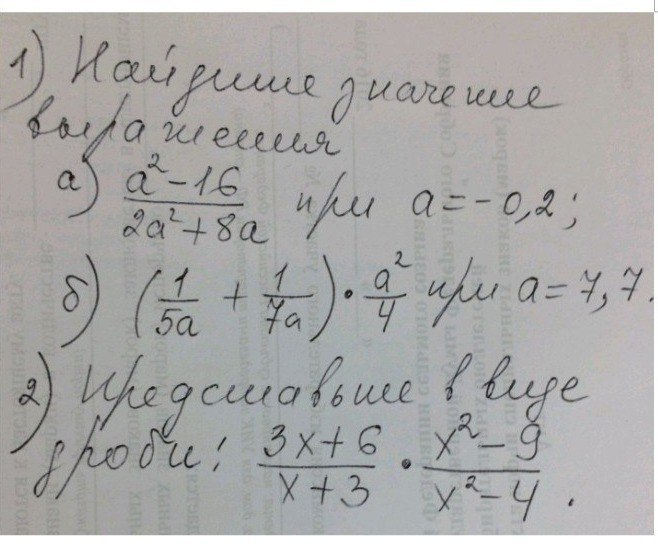 1) Найдите значение
выражения
а) (a² - 16)/(2a² + 8a) при a = -0,2;
б) (1/5a + 1/7a) · a²/4 при a = 7,7.
2) Представьте в виде
дроби: (3x + 6)/(x + 3) · (x² - 9)/(x² - 4).